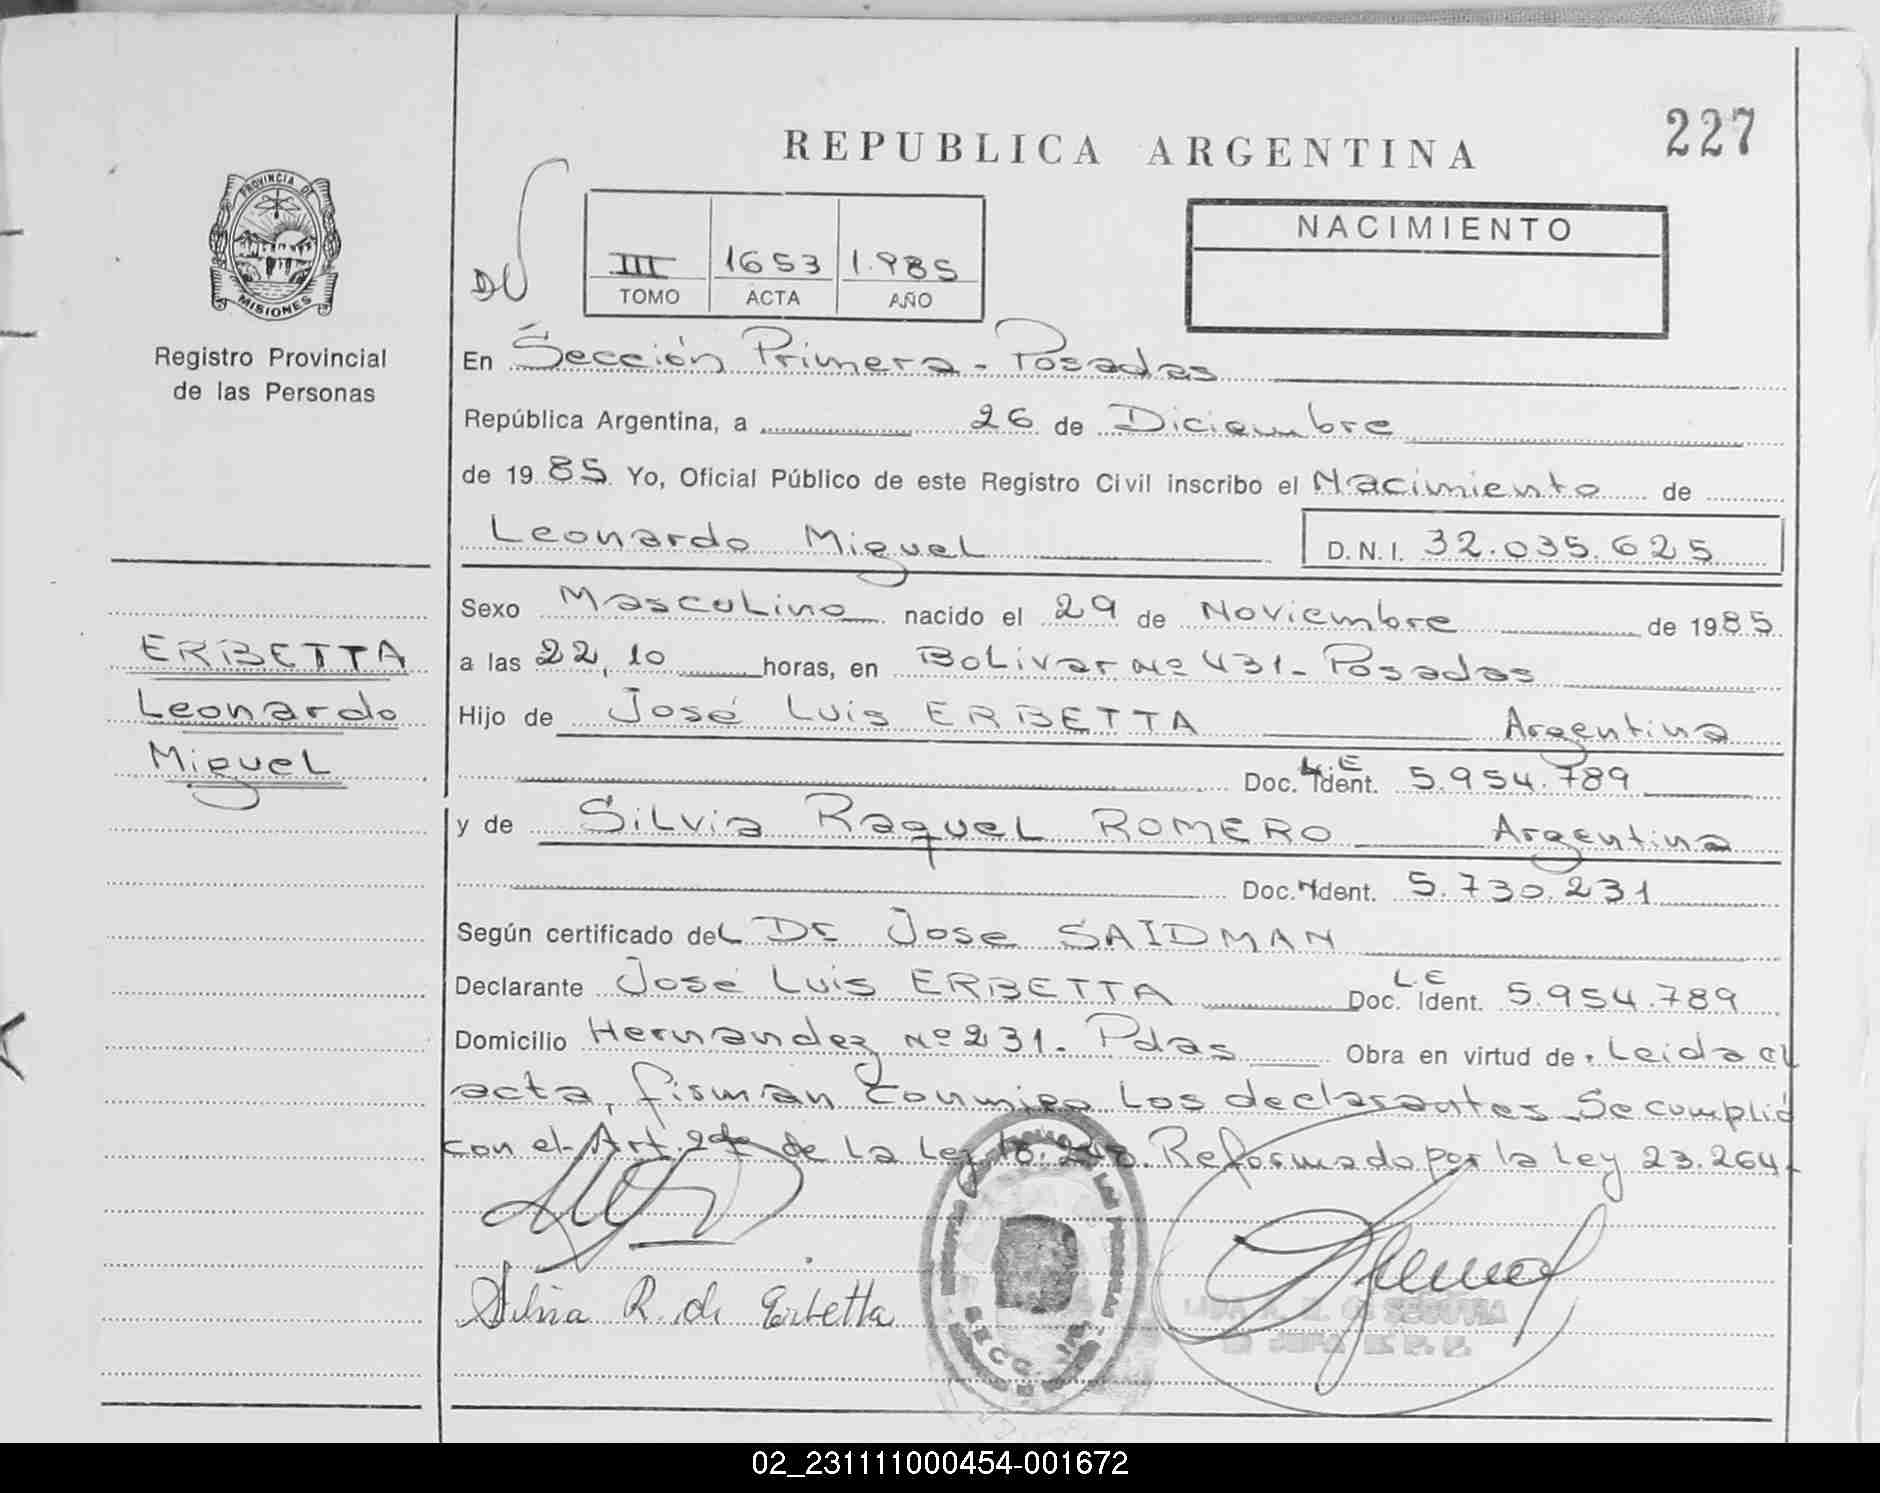 227
REPUBLICA ARGENTINA
PROVINCIA DE
MISIONES
Registro Provincial
de las Personas
III 1653 1.985
TOMO ACTA AÑO
NACIMIENTO
En Sección Primera - Posadas
República Argentina, a 26 de Diciembre
de 1985 Yo, Oficial Público de este Registro Civil inscribo el Nacimiento de
Leonardo Miguel D.N.I. 32.035.625
Sexo Masculino nacido el 29 de Noviembre de 1985
ERBETTA
Leonardo
Miguel
a las 22,10 horas, en Bolivar Nº 431 - Posadas
Hijo de José Luis ERBETTA Argentina
Doc. L.E Ident. 5.954.789
y de Silvia Raquel ROMERO Argentina
Doc. Ident. 5.730.231
Según certificado del Dr Jose SAIDMAN
Declarante José Luis ERBETTA Doc. L.E Ident. 5.954.789
Domicilio Hernandez Nº 231. Pdas Obra en virtud de . Leida el
acta, firman conmigo los declarantes. Se cumplió
con el Art. 2 de la Ley 18.248. Reformado por la Ley 23.264.
Silvia R. de Erbetta
SEGOVIA
02_231111000454-001672